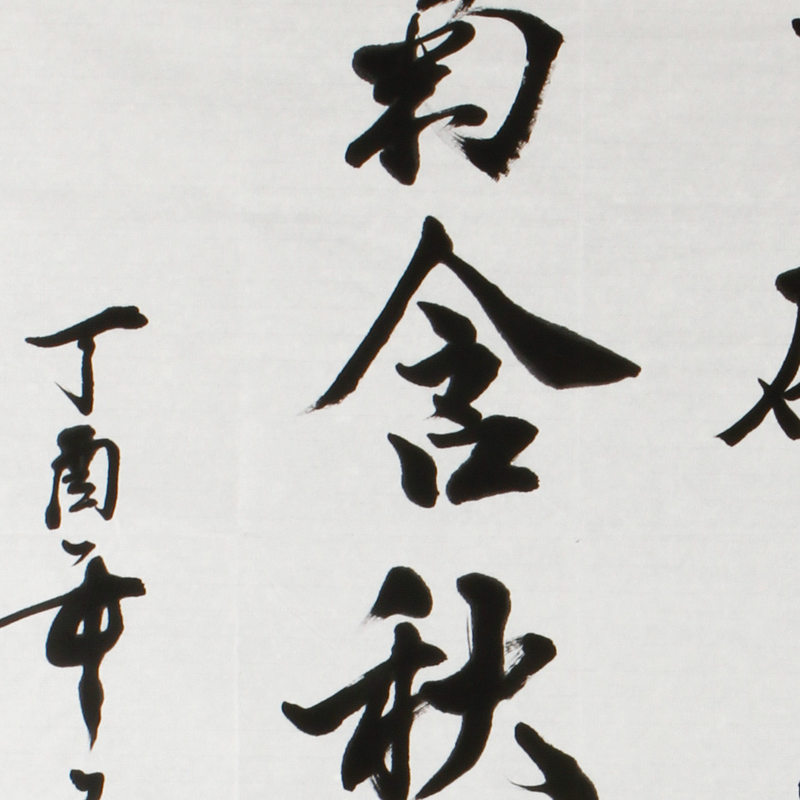 菊含秋
丁酉年